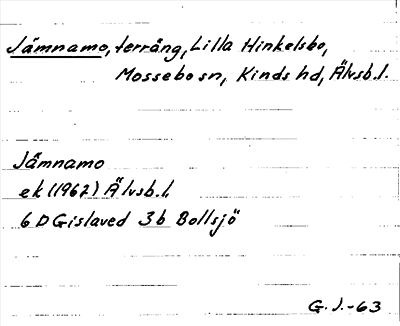 Jämnamo, terräng, Lilla Hinkelsbo,
Mossebo sn, Kinds hd, Älvsb.l.
Jämnamo
ek (1967) Älvsb.l.
6 D Gislaved 3b Bollsjö
G.J.-63